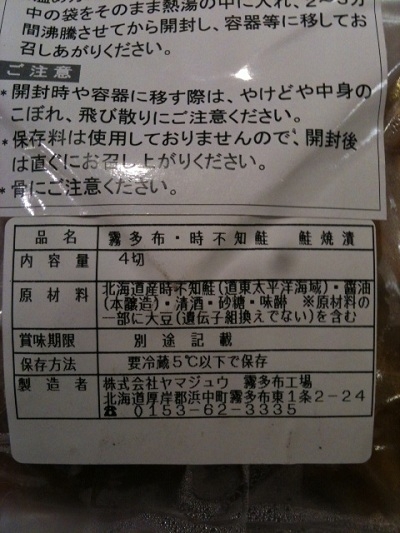 中の袋をそのまま熱湯の中に入れ、2～3分
間沸騰させてから開封し、容器等に移してお
召しあがりください。
ご注意
*開封時や容器に移す際は、やけどや中身の
こぼれ、飛び散りにご注意ください。
*保存料は使用しておりませんので、開封後
は直ぐにお召し上がりください。
*骨にご注意ください。
品名 霧多布・時不知鮭 鮭焼漬
内容量 4切
原材料 北海道産時不知鮭(道東太平洋海域)・醤油
(本醸造)・清酒・砂糖・味醂 ※原材料の
一部に大豆(遺伝子組換えでない)を含む
賞味期限 別途記載
保存方法 要冷蔵5℃以下で保存
製造者 株式会社ヤマジュウ 霧多布工場
北海道厚岸郡浜中町霧多布東1条2-24
☎ 0153-62-3335